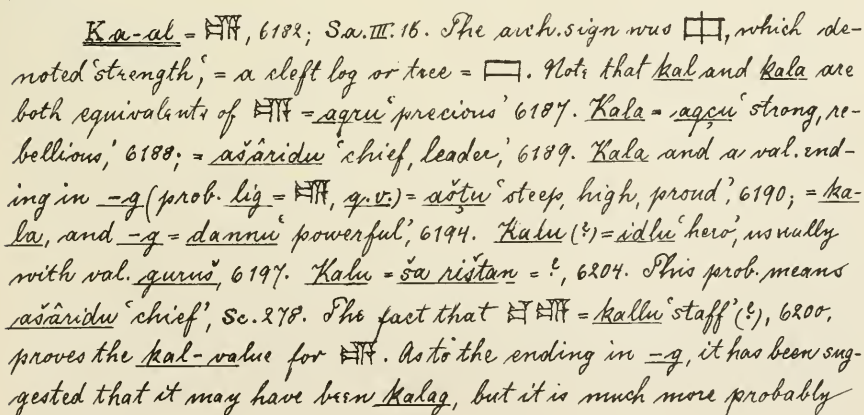 Ka-al = 𒆗, 6182; Sa. III. 16. The arch. sign was , which de-
noted ‘strength’, = a cleft log or tree = . Note that kal and kala are
both equivalents of 𒆗 = aqru ‘precious’ 6187. Kala = aqçu ‘strong, re-
bellious,’ 6188; = ašâridu ‘chief, leader,’ 6189. Kala and a val. end-
ing in -g (prob. lig = 𒆗, q.v.) = ašṭu ‘steep, high, proud’, 6190; = ka-
la, and -g = dannu ‘powerful’, 6194. Kalu (?) = idlu ‘hero’, usually
with val. guruš, 6197. Kalu = ša rištan = ?, 6204. This prob. means
ašâridu ‘chief’, Sc. 278. The fact that 𒄑 𒆗 = kallu ‘staff’ (?), 6200,
proves the kal-value for 𒆗. As to the ending in -g, it has been sug-
gested that it may have been kalag, but it is much more probably